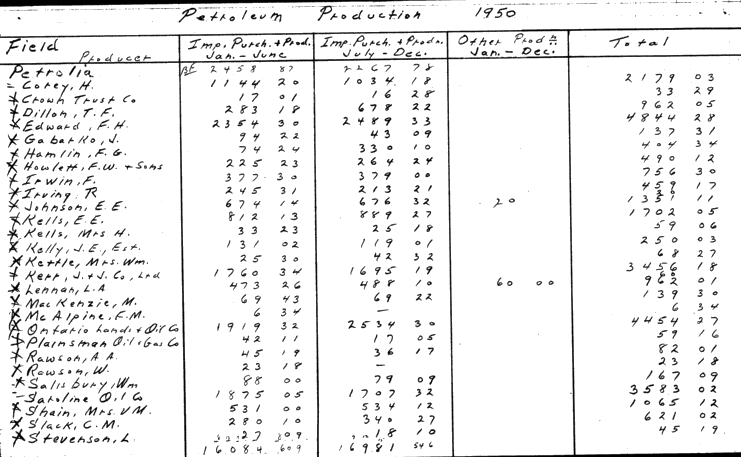 Petroleum Production 1950
Field Producer Imp. Purch. + Prod. Jan. - June Imp. Purch. + Prodn. July - Dec. Other Prod n Jan. - Dec. Total
Petrolia BF 2458 87 2267 78
- Corey, H. 1144 20 1034 18 2179 03
x Crown Trust Co 17 01 16 28 33 29
x Dillon, T. F. 283 18 678 22 962 05
x Edward, F. H. 2354 30 2489 33 4844 28
x Gabarko, J. 94 22 43 09 137 31
x Hamlin, F. G. 74 24 330 10 404 34
x Howlett, F. W. + Sons 225 23 264 24 490 12
x Irwin, F. 377 30 379 00 756 30
x Irving, R 245 31 213 21 459 17
x Johnson, E. E. 674 14 676 32 20 1351 11
x Kells, E. E. 812 13 889 27 1702 05
x Kells, Mrs H. 33 23 25 18 59 06
x Kelly, J. E., Est. 131 02 119 01 250 03
x Kettle, Mrs. Wm. 25 30 42 32 68 27
+ Kerr, J. + J. Co, Ltd 1760 34 1695 19 3456 18
x Lennan, L. A 473 26 488 10 60 00 962 01
x MacKenzie, M. 69 43 69 22 139 30
x McAlpine, F. M. 6 34 — 6 34
x Ontario Lands + Oil Co 1919 32 2534 30 4454 27
+ Plainsman Oil + Gas Co 42 11 17 05 59 16
x Rawson, A. A. 45 19 36 17 82 01
x Rawson, W. 23 18 — 23 18
x Salisbury, Wm 88 00 79 09 167 09
- Saroline Oil Co 1875 05 1707 32 3583 02
+ Shain, Mrs. V M. 531 00 534 12 1065 12
x Slack, C. M. 280 10 340 27 621 02
x Stevenson, L. 27 09 18 10 45 19
16084 609 16981 546